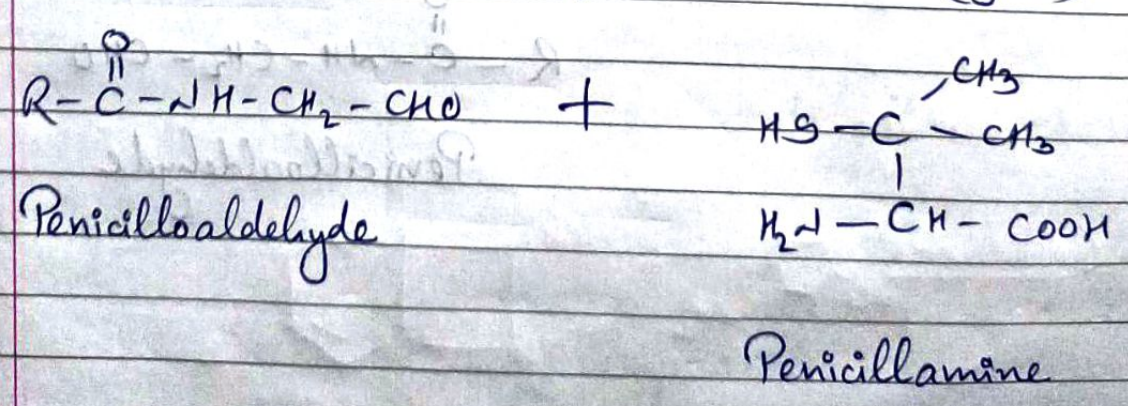 O
||
R-C-NH-CH₂-CHO + HS-C-CH₃
CH₃
|
H₂N-CH-COOH
Penicilloaldehyde
Penicillamine